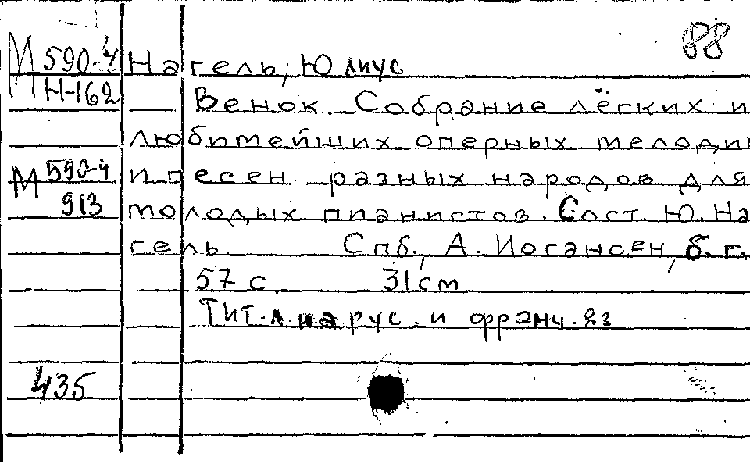 88
М 590-4 Нагель, Юлиус
Н-162 Венок. Собрание лёгких и
любитейших оперных мелодий
М 590-4 и песен разных народов для
913 молодых пианистов. Сост. Ю. На
гель. Спб., А. Иогансен, б. г.
57 с. 31 см
Тит. л. на рус. и франц. яз
435